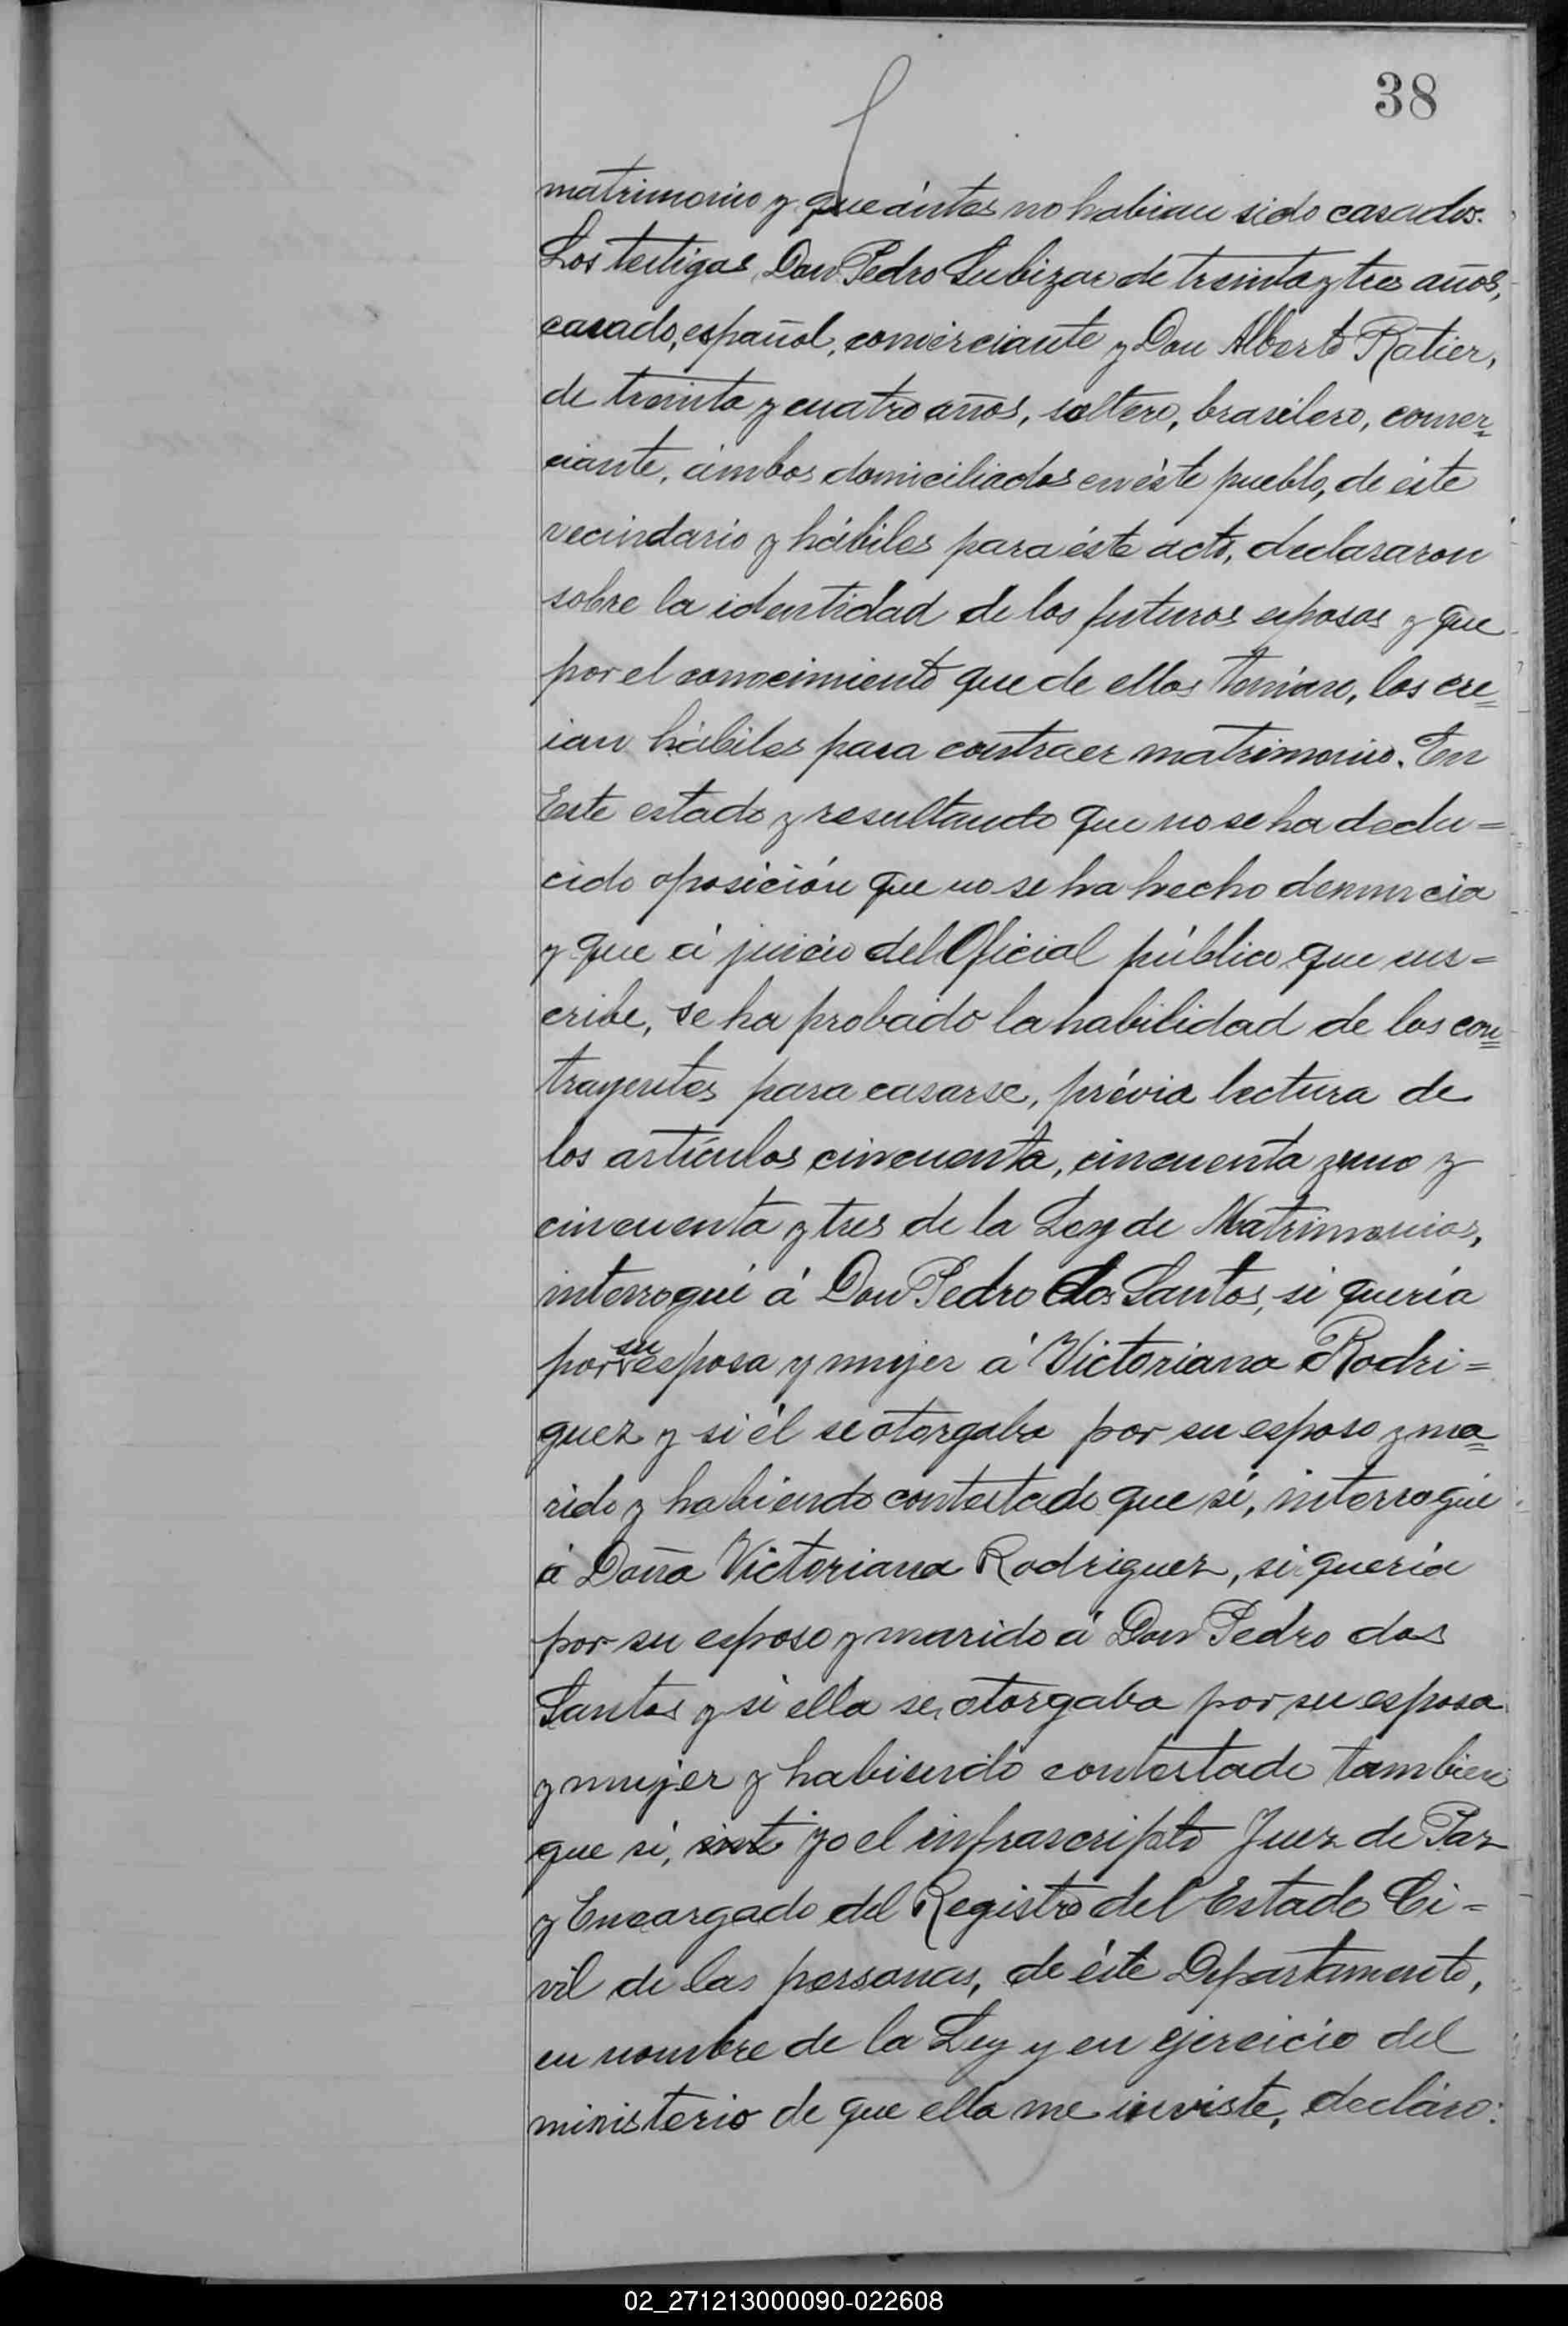 38
matrimonio y que ántes no habian sido casados.
Los testigos, Don Pedro Lubizar de treinta y tres años,
casado, español, comerciante y Don Alberto Ratier,
de treinta y cuatro años, soltero, brasilero, comer=
ciante, ámbos domiciliados en éste pueblo, de éste
vecindario y hábiles para éste acto, declararon
sobre la identidad de los futuros esposos y que
por el conocimiento que de ellos tenian, los cre=
ian hábiles para contraer matrimonio. En
Este estado y resultando que no se ha dedu=
cido oposición que no se ha hecho denuncia
y que á juicio del Oficial público que sus=
cribe, se ha probado la habilidad de los con=
trayentes para casarse, prévia lectura de
los artículos cincuenta, cincuenta y uno y
cincuenta y tres de la Ley de Matrimonios,
interrogué á Don Pedro dos Santos, si quería
por su esposa y mujer á Victoriana Rodri=
guez y si él se otorgaba por su esposo y ma=
rido y habiendo contestado que si, interrogué
á Doña Victoriana Rodriguez, si quería
por su esposo y marido á Don Pedro dos
Santos y si ella se otorgaba por su esposa
y mujer y habiendo contestado tambien
que si, yo el infrascripto Juez de Paz
y Encargado del Registro del Estado Ci=
vil de las personas, de éste Departamento,
en nombre de la Ley y en ejercicio del
ministerio de que ella me inviste, decláro:
02_271213000090-022608